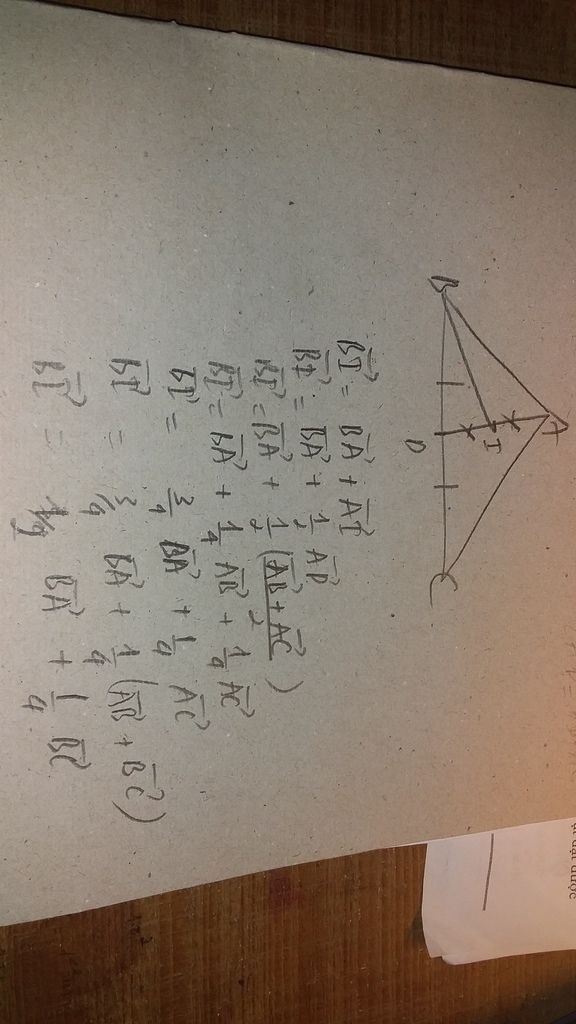 A
I
B
D
C
$\vec{BI} = \vec{BA} + \vec{AI}$
$\vec{BI} = \vec{BA} + \frac{1}{2} \vec{AD}$
$\vec{BI} = \vec{BA} + \frac{1}{2} \left( \frac{\vec{AB} + \vec{AC}}{2} \right)$
$\vec{BI} = \vec{BA} + \frac{1}{4} \vec{AB} + \frac{1}{4} \vec{AC}$
$\vec{BI} = \frac{3}{4} \vec{BA} + \frac{1}{4} \vec{AC}$
$\vec{BI} = \frac{3}{4} \vec{BA} + \frac{1}{4} (\vec{AB} + \vec{BC})$
$\vec{BI} = \vec{BA} + \frac{1}{4} \vec{BC}$
được